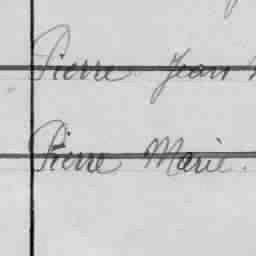 Pierre Jean
Pierre Marie.